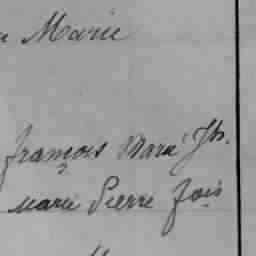 Marie
françois Marie Jh.
Marie Pierre fois